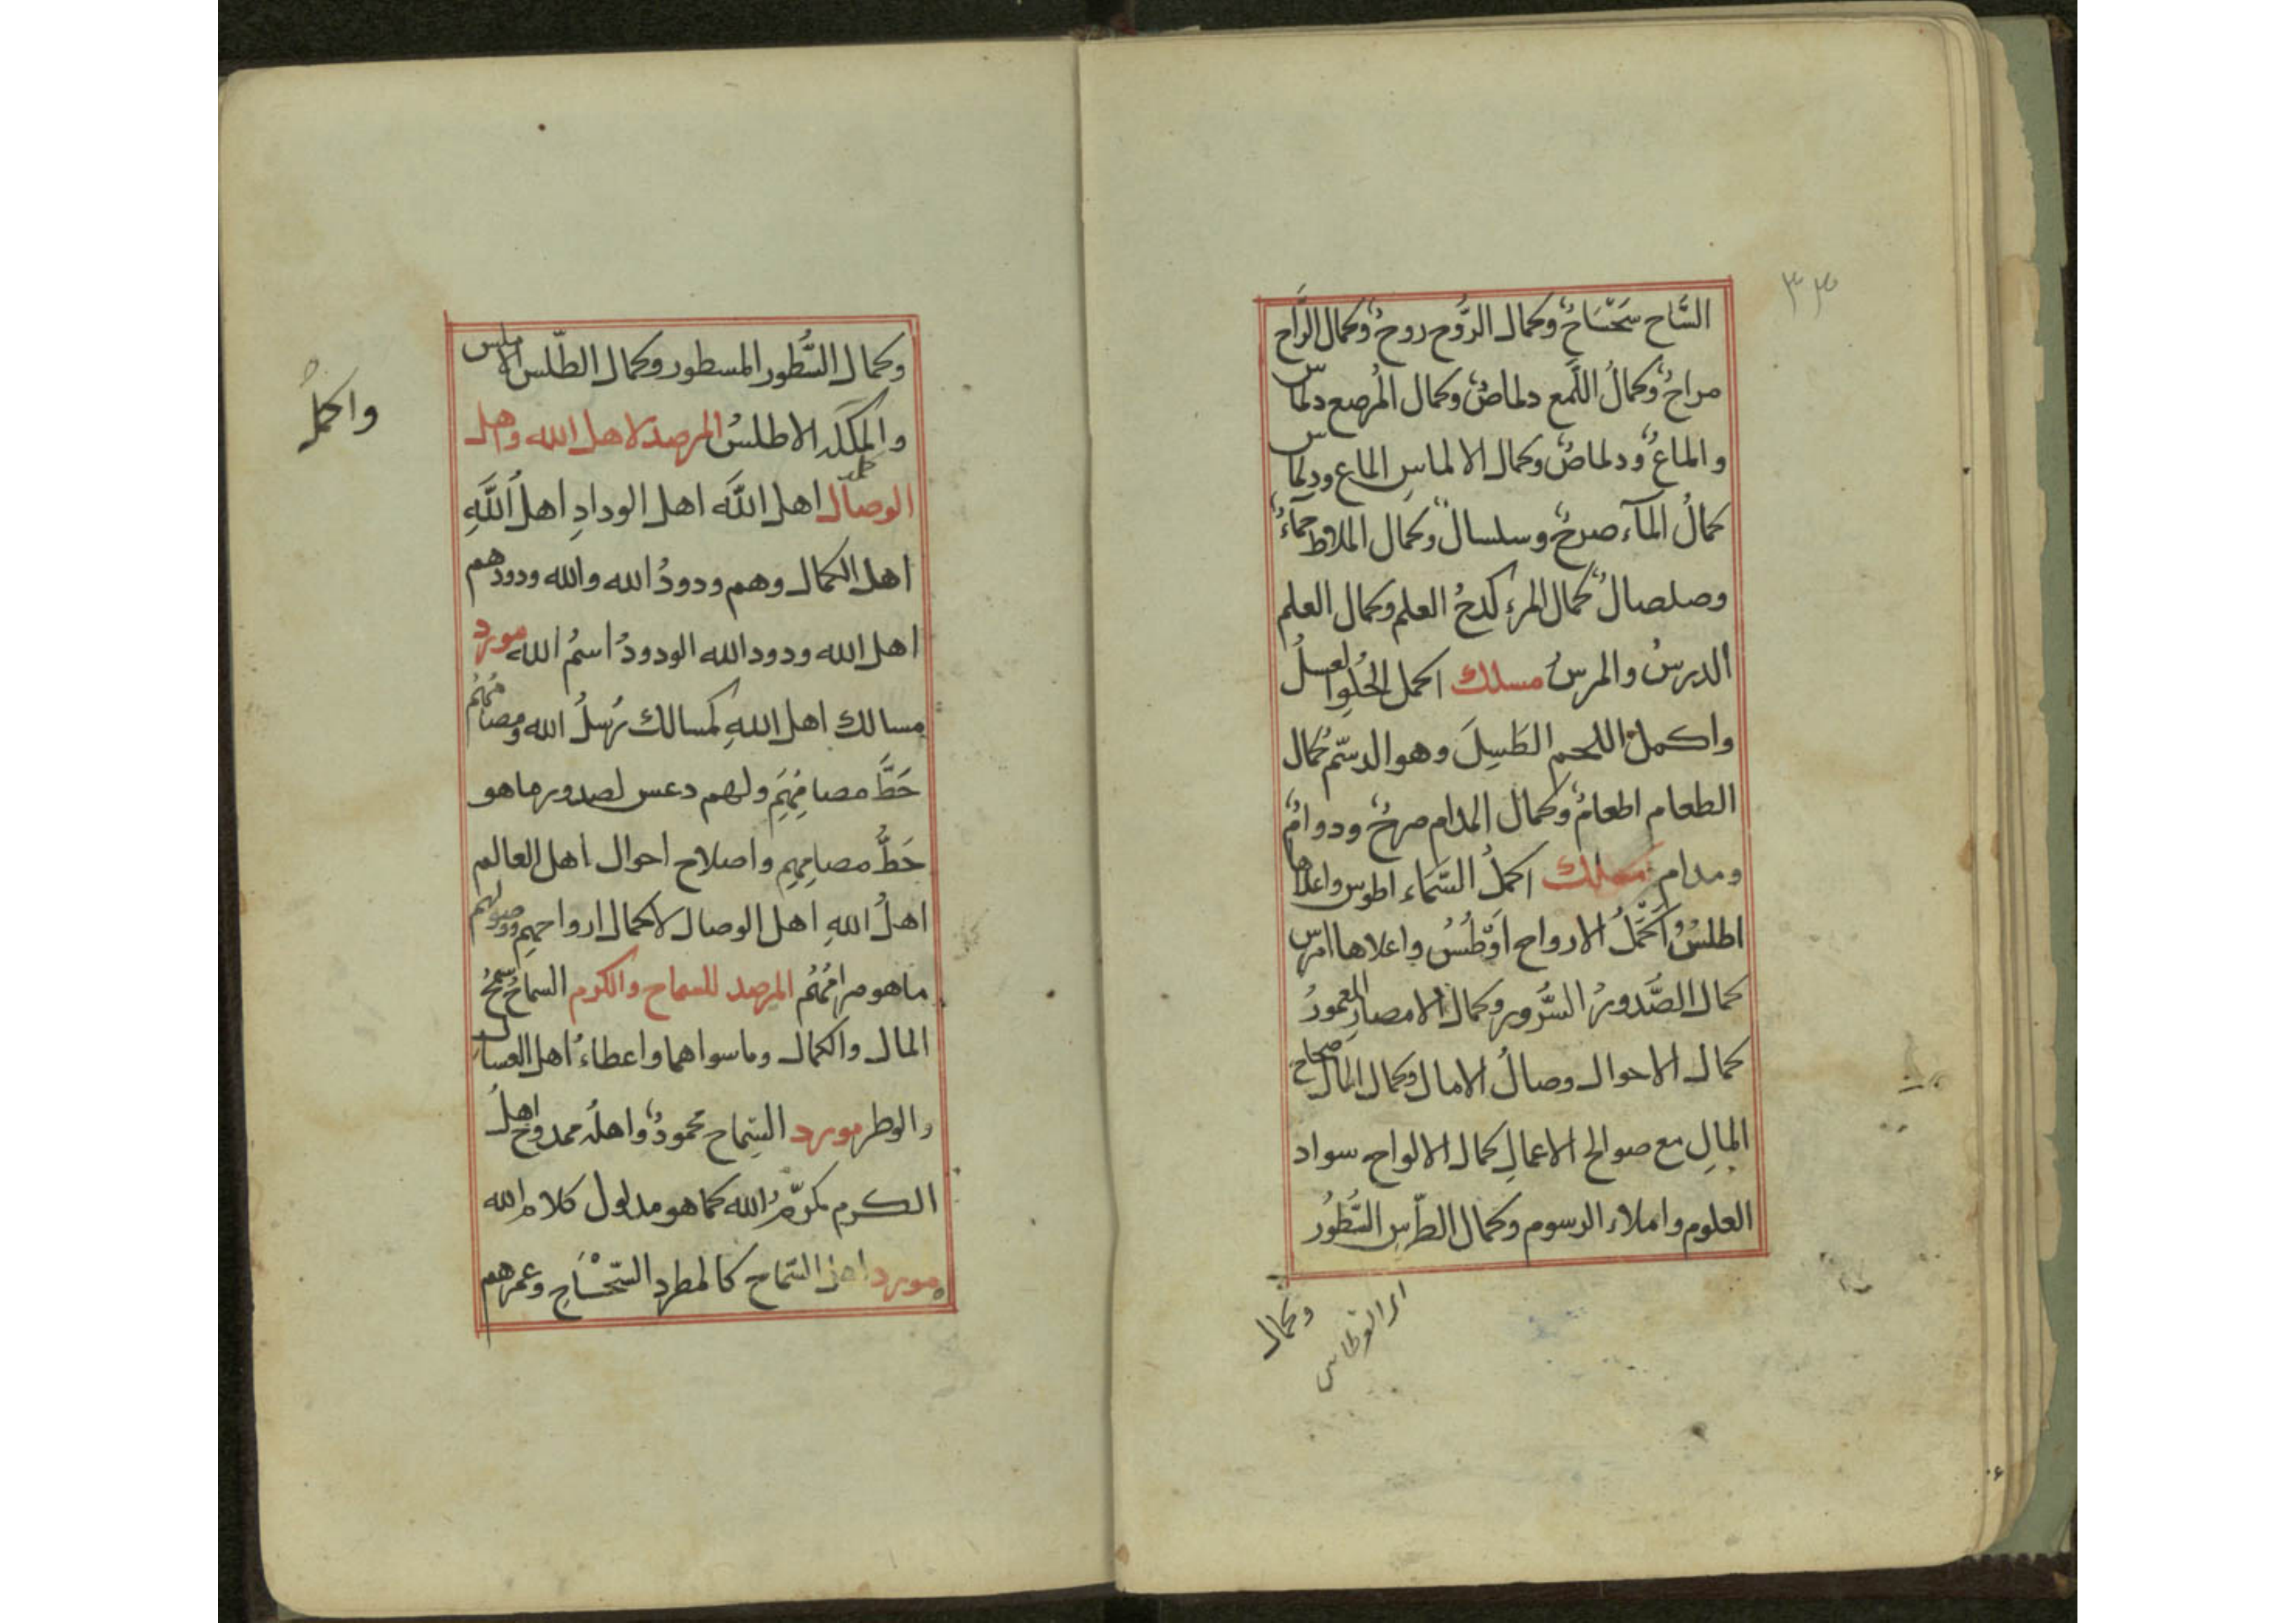 ٣٣
السَّاح سَحْسَاحٌ وكمال الرَّوح روحٌ وكمال الرَّاح
مراحٌ وكمالُ اللَّمع دلماصٌ وكمال المُرصع دلماس
والماعٌ ودلماصٌ وكمال الالماسِ الماع ودلماس
كمالُ المآء صرحٌ وسلسالٌ وكمال الملاط حماءٌ
وصلصالٌ كمال المرء كدحُ العلم وكمال العلم
الدرسُ والمرسُ مسلك اكمل الحُلوِ العسلُ
واكمل اللحم الطَسِلَ وهو الدسّم كمال
الطعام اطعامٌ وكمال المدام صرحٌ ودوامٌ
ومدام مسلك اكملُ السَّمَاء اطوس واعلاها
اطلسُ واكمَلُ الارواح اوْطُسُ واعلاها امرس
كمال الصَّدورُ السُّرور وكمال الامصارِ المعمورُ
كمال الاحوال وصالُ الامال وكمال المال صحاح
المالِ مع صوالح الاعمالِ كمال الالواح سواد
العلوم واملاء الرسوم وكمال الطّرسِ السُّطُور
وكمال
وكمال السُّطور المسطور وكمال الطّلس الاملس
واكملُ
والمكَلَّد الاطلسُ المرصد لاهل الله وهل
الوصال اهل اللَّه اهل الودادِ اهلُ اللَّهِ
اهل الكمال وهم ودودُ الله والله ودودهم
اهل الله ودود الله الودودُ اسمُ الله مورد
مسالك اهل اللهِ كمسالك رُسلُ الله ومصامُهُم
حَطَّ مصامِهِم ولهم دعس لصدور ما هو
حَطُّ مصامِهِم واصلاح احوال اهل العالم
اهلُ اللهِ اهل الوصال لاكمال ارواحهم ووصولهم
ما هو مرامُهُم المرصد للسماح والكرم السماحُ سمحُ
المال والكمال وما سواهما واعطاءُ اهل العسال
والوطر مورد السّماح محمودٌ واهلُه ممدوحٌ اهلُ
الكرم مكرّمُ الله كما هو مدلول كلام الله
مورد اهل السّماح كالمطرد السّحْسَاحِ وعمرهم